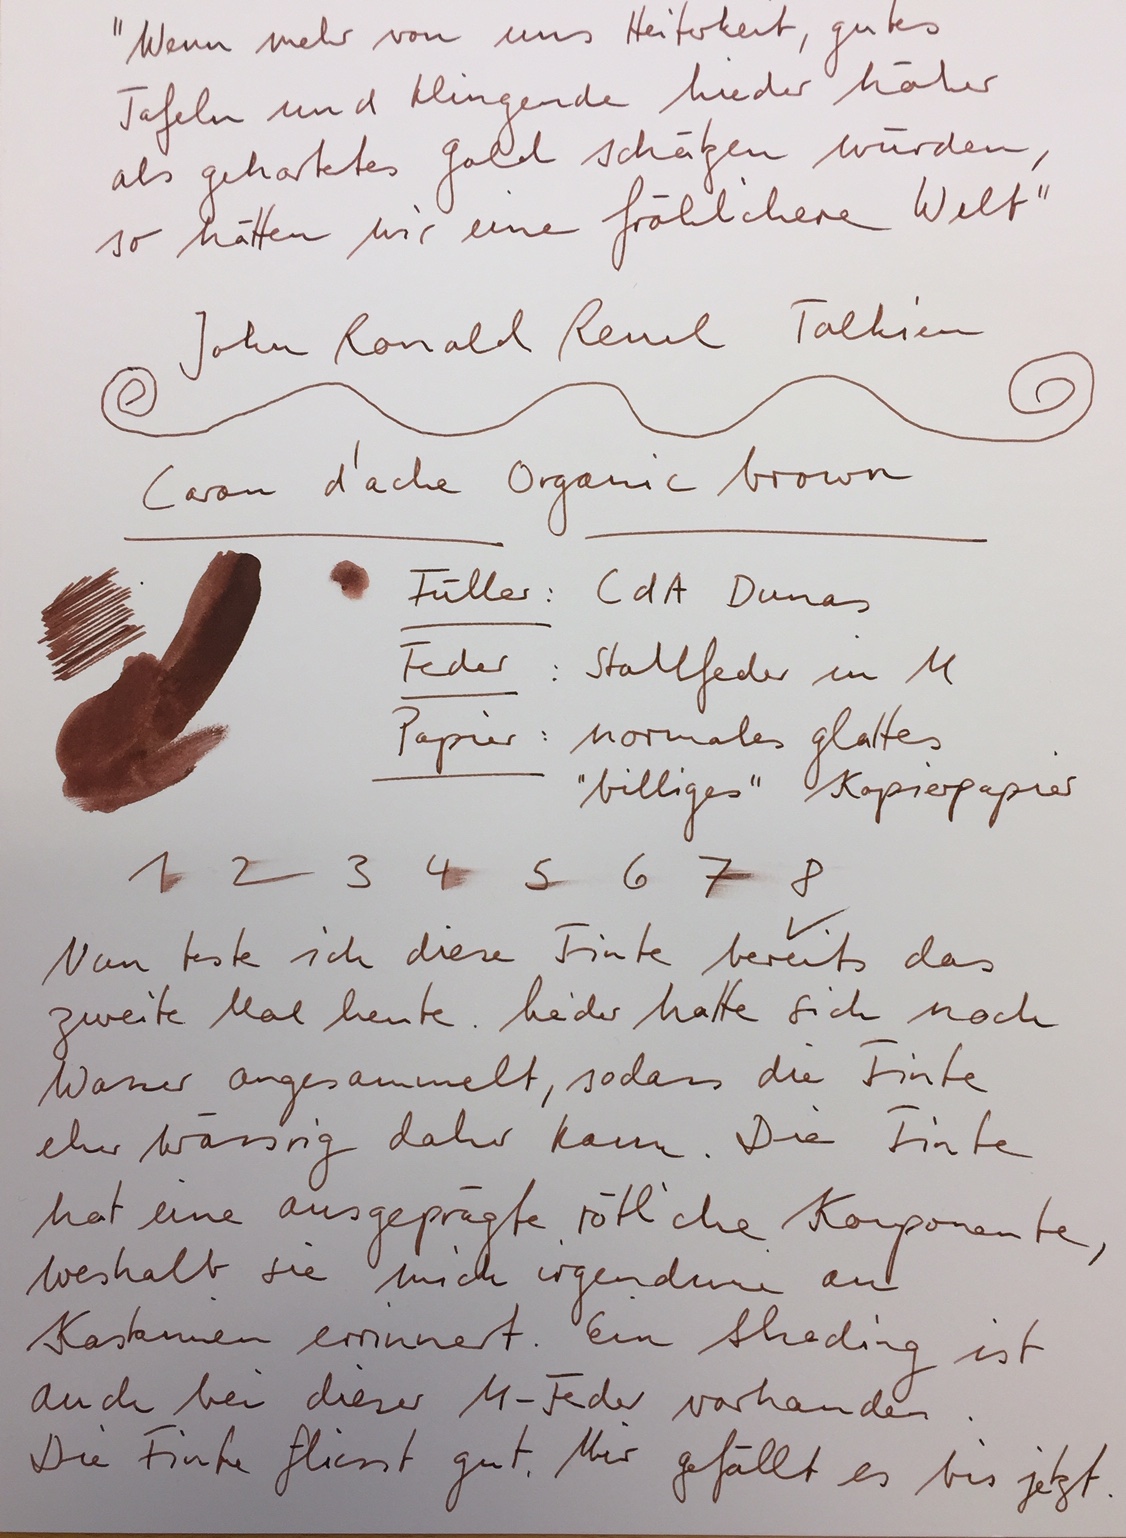 "Wenn mehr von uns Heiterkeit, gutes
Tafeln und klingende Lieder höher
als gehortetes Gold schätzen würden,
so hätten wir eine fröhlichere Welt"
John Ronald Reuel Tolkien
Caran d'ache Organic brown
Füller: CdA Dunas
Feder: Stahlfeder in M
Papier: normales glattes
"billiges" Kopierpapier
1 2 3 4 5 6 7 8
Nun teste ich diese Tinte bereits das
zweite Mal heute. Leider hatte sich noch
Wasser angesammelt, sodass die Tinte
eher wässrig daher kam. Die Tinte
hat eine ausgeprägte rötliche Komponente,
weshalb sie mich irgendwie an
Kastanien erinnert. Ein Shading ist
auch bei dieser M-Feder vorhanden.
Die Tinte fliesst gut. Mir gefällt es bis jetzt.